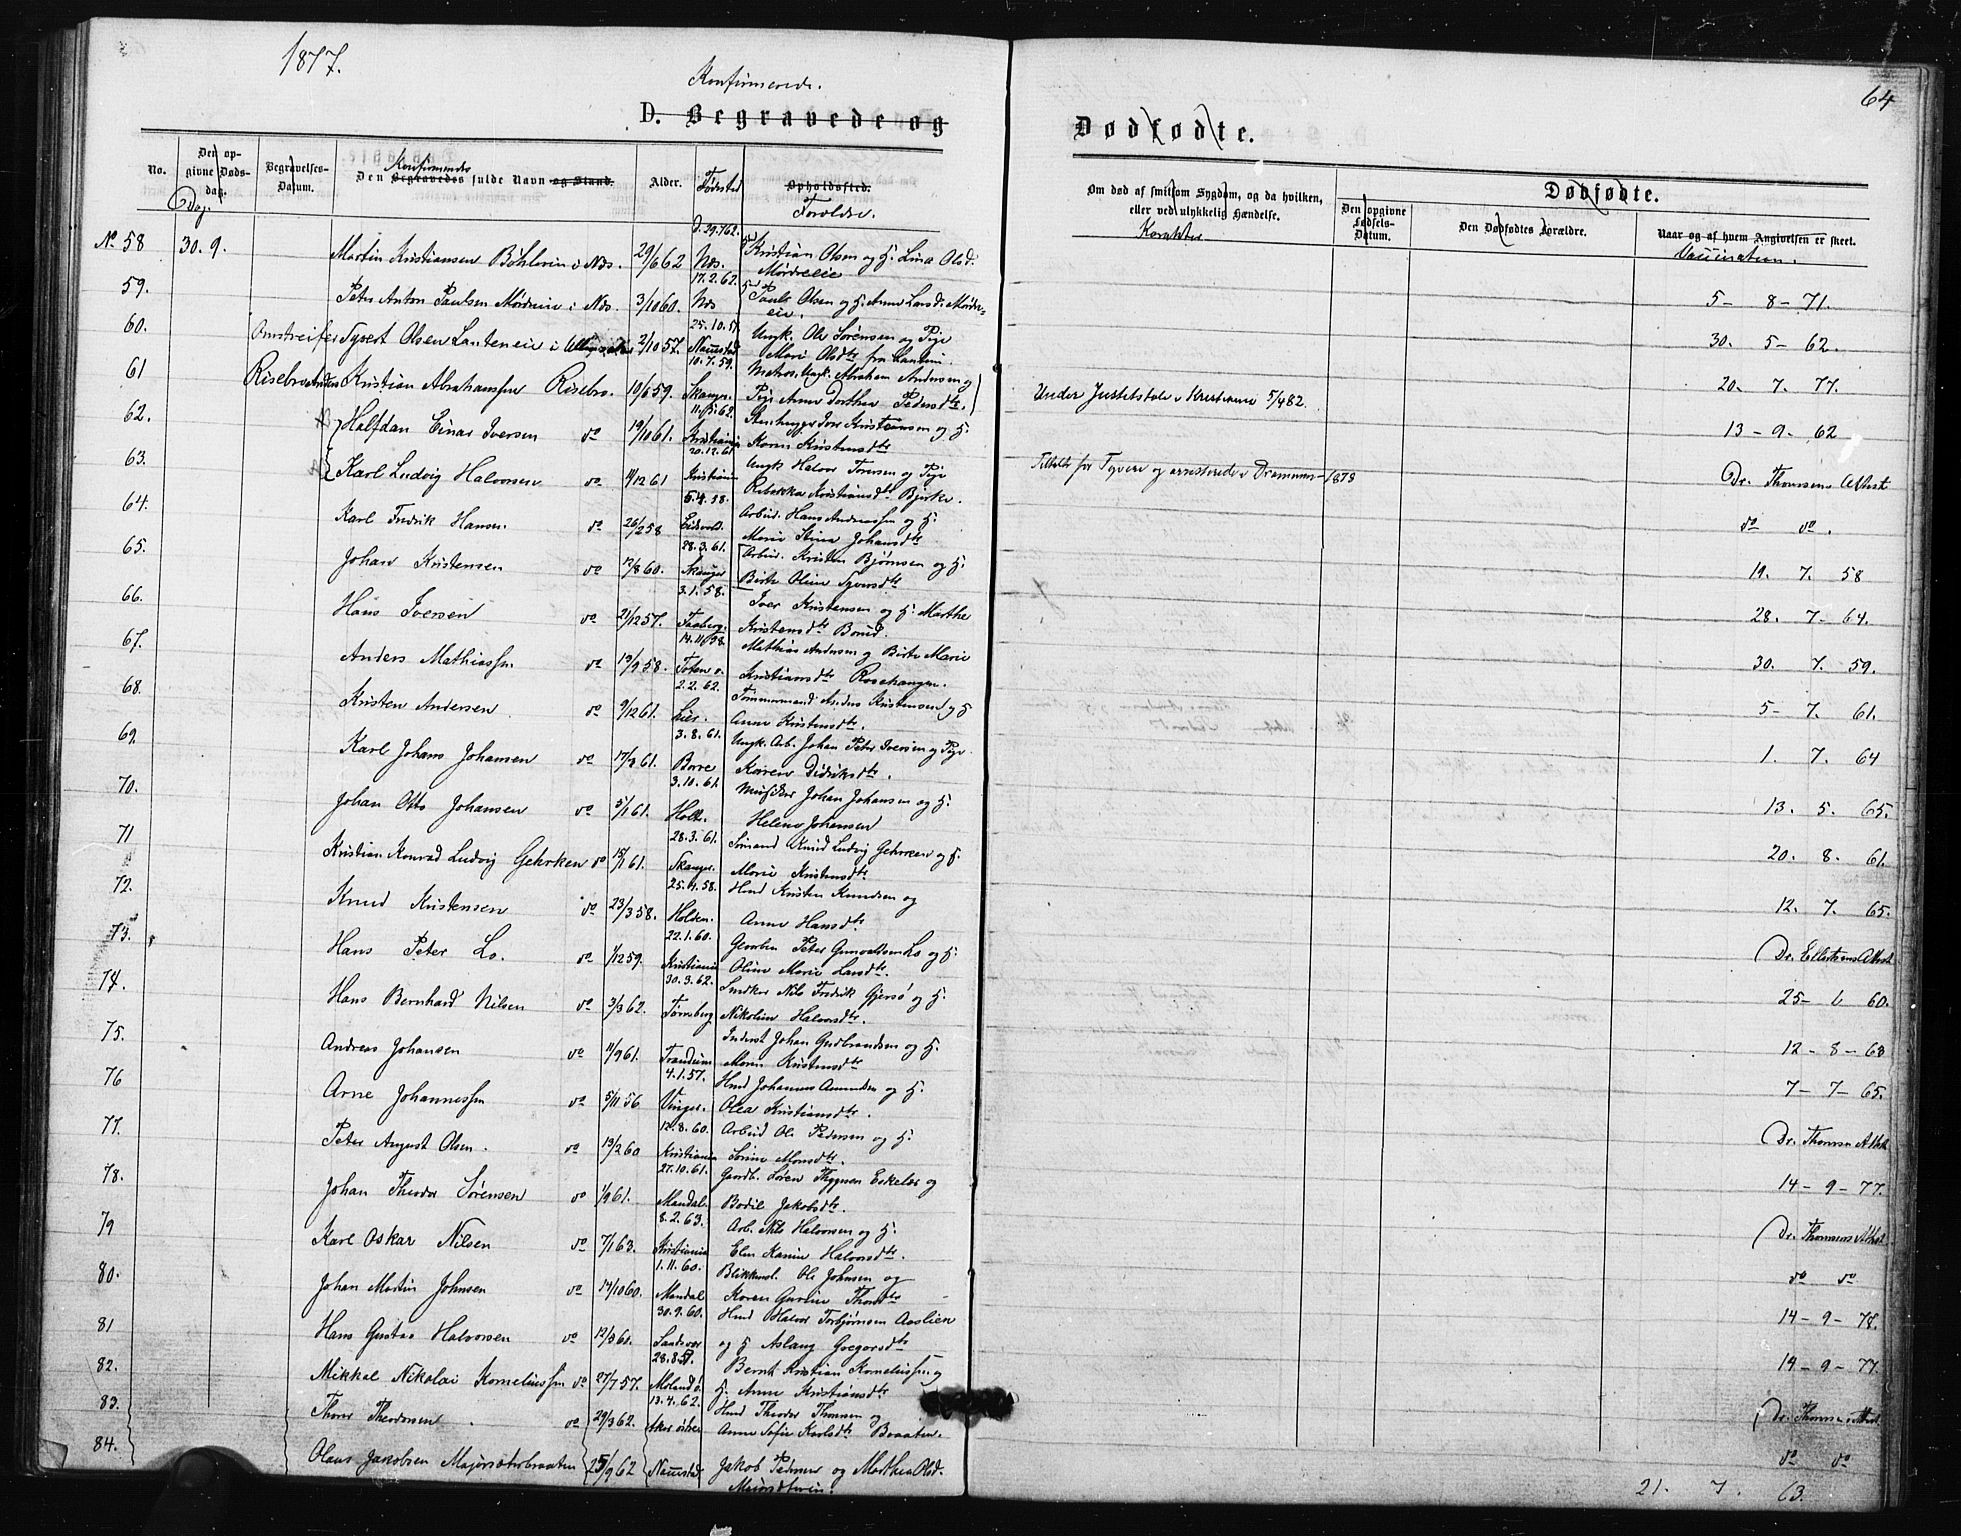 1877.
64
Konfirmerede.
D. Begravede og
Dødfødte.
No.
Den opgivne Dødsdag.
Dag.
Begravelses-Datum.
Konfirmeredes
Den Begravedes fulde Navn og Stand.
Alder.
Fødested
Opholdssted.
Forældre.
Om død af smitsom Sygdom, og da hvilken, eller ved ulykkelig Hændelse.
Dødfødte.
Den opgivne Fødsels-Datum.
Den Dødfødtes Forældre.
Naar og af hvem Angivelsen er skeet.
Vaccination.
D. 29.7 62.
No 58 30. 9. Martin Kristiansen Bøhleren i Næs. 29/6 62 Næs. Kristian Olsen og H. Lina Olsd.
17.2.62. Mørdreeie
5 - 8 - 71.
59. Peter Anton Paulsen Mørdreeie i Næs. 3/10 60. Næs Paul Olsen og H. Anne Larsd. Mørdre-
25.10.57. eie.
30. 5 - 62.
60. Omstreifer Syvert Olsen Lanteneie i Ullensaker 2/10 57. Nannestad Ungk. Ole Sørensen og Pige
10.7.59. Mari Olsdtr fra Lanteni.
20. 7. 77.
61 Risebro Anders Kristian Abrahamsen Risebro. 10/6 59. Skanger. Matros. Ungk. Abraham Andersen og
Pige Anne Dorthea Pedersdtr.
Under Justitstole i Kristiania 5/4 82.
13 - 9 - 62
62. Halfdan Einar Iversen do 19/10 61. Kristiania Stenhugger Iver Kristiansen og H.
20.12.61 Karen Kristensdtr
Dr. Thomsens Attest
63. Karl Ludvig Halvorsen do 4/12 61 Kristiania Ungk Halvor Tonsen og Pige
5.4.58. Rebekka Kristiansdtr Bjerke.
Tiltalt for Tyveri og arresteret i Drammen - 1879
do do.
64. Karl Fredrik Hansen do 26/2 58 Eidsvold. Arbeid. Hans Andreassen og H.
28.3.61. Marie Stina Johansdtr
19. 7. 58
65. Johan Kristensen do 12/8 60. Skanger Arbeid. Kristen Bjørnsen og H.
3.1.58. Birte Oline Syversdtr
28. 7 - 64.
66. Hans Iversen do 21/12 57. Faaberg. Iver Kristensen og H. Marthe
Kristensdtr Borud.
30. 7. 59.
67. Anders Mathiassen do 19/9 58. Toten v. Mathias Andersen og Birte Marie
2.2.62. Kristiansdtr Rosehaugen.
5 - 7. 61.
68. Kristen Andersen do 9/12 61. Lier. Tømmermand Anders Kristensen og H
3.8.61. Anne Kristensdtr.
1. 7. 64
69. Karl Johans Johansen do 17/2 61. Borre Ungk. Arb. Johan Peter Iversen og Pige
3.10.61. Karen Didriksdtr.
13. 5. 65.
70. Johan Otto Johansen do 5/1 61. Holte. Musiker Johan Johansen og H.
28.3.61. Helene Johansen
20. 8. 61.
71 Kristian Konrad Ludvig Gehrken do 15/1 61. Skanger. Sømand Knud Ludvig Gehrken og H.
25.4.58. Marie Kristensdtr
12. 7. 65.
72. Knud Kristensen do 23/3 58. Holden. Hmd Kristen Knudsen og
22.1.60. Anne Hansdtr
Dr. Ellertsens Attest
73. Hans Peter Lo. do 1/12 59. Kristiania Gaarbr. Peter Gunvaldsen Lo og H.
30.3.62. Oline Marie Larsdtr.
25 - 6 60.
74. Hans Bernhard Nilsen do 3/3 62. Tønsberg Snedker Nils Fredrik Gjersø og H.
Nikoline Halvorsdtr.
12 - 8 - 63
75. Andreas Johansen do 11/9 61. Trandum Inderst Johan Gudbrandsen og H.
4.1.57. Maren Kristensdtr
7 - 7 - 65.
76 Arne Johannessen do 5/11 56 Vinger. Hmd Johannes Amundsen og H.
12.8.60. Olea Kristiansdtr.
Dr. Thomsens Attest
77. Peter August Olsen. do 19/2 60 Kristiania Arbeid Ole Pedersen og H.
27.10.61. Sørine Monsdtr.
14 - 9 - 77.
78. Johan Theodor Sørensen do 1/9 61. Mandal. Gaardb. Søren Thygesen Eskeler og
8.2.63. Bodil Jakobsdtr.
Dr. Thomsens Attest
79 Karl Oskar Nilsen do 7/1 63. Kristiania Arb. Nils Halvorsen og H.
1.11.60. Elen Karine Halvorsdtr.
do do
80. Johan Martin Johnsen do 14/10 60. Mandal Blikkensl. Ole Johnsen og
30.9.60. Karen Gurine Thorsdtr
14 - 9 - 78.
81 Hans Gustav Halvorsen do 12/3 60. Sandsvær Hmd Halvor Torbjørnsen Aaslien
28.8.57. og H Aslaug Gregorsdtr
14 - 9 - 77.
82. Mikkal Nikolai Korneliussen do 27/7 57. Moland ø. Bernt Kristian Korneliussen og
13.4.62. H. Anne Kristiansdtr
Dr. Thomsens Attest.
83. Thorer Theodorsen do 29/3 62. Aker østre Hmd Theodor Thoresen og
Anne Sofie Karlsdtr Braaten.
do do
84. Olaus Jakobsen Majorsæterbraaten 25/9 62 Nannestad Jakob Pedersen og Marthea Olsd.
21. 7. 63.